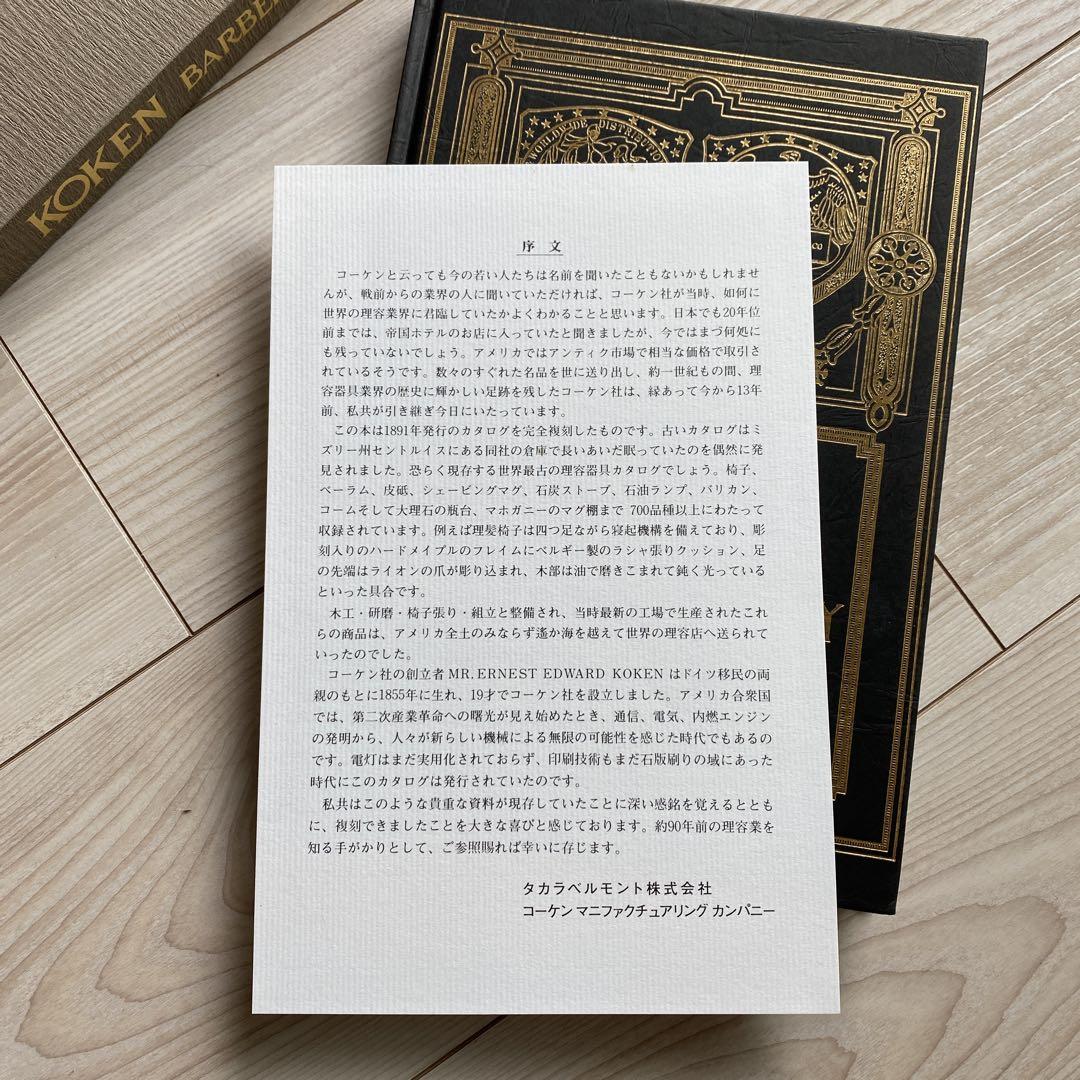 KOKEN BARBE
WORLDWIDE DISTRIBUTTO
CO
Y
序文
コーケンと云っても今の若い人たちは名前を聞いたこともないかもしれませ
んが、戦前からの業界の人に聞いていただければ、コーケン社が当時、如何に
世界の理容業界に君臨していたかよくわかることと思います。日本でも20年位
前までは、帝国ホテルのお店に入っていたと聞きましたが、今ではまづ何処に
も残っていないでしょう。アメリカではアンティク市場で相当な価格で取引さ
れているそうです。数々のすぐれた名品を世に送り出し、約一世紀もの間、理
容器具業界の歴史に輝かしい足跡を残したコーケン社は、縁あって今から13年
前、私共が引き継ぎ今日にいたっています。
この本は1891年発行のカタログを完全複刻したものです。古いカタログはミ
ズリー州セントルイスにある同社の倉庫で長いあいだ眠っていたのを偶然に発
見されました。恐らく現存する世界最古の理容器具カタログでしょう。椅子、
ベーラム、皮砥、シェービングマグ、石炭ストーブ、石油ランプ、バリカン、
コームそして大理石の瓶台、マホガニーのマグ棚まで 700品種以上にわたって
収録されています。例えば理髪椅子は四つ足ながら寝起機構を備えており、彫
刻入りのハードメイプルのフレイムにベルギー製のラシャ張りクッション、足
の先端はライオンの爪が彫り込まれ、木部は油で磨きこまれて鈍く光っている
といった具合です。
木工・研磨・椅子張り・組立と整備され、当時最新の工場で生産されたこれ
らの商品は、アメリカ全土のみならず遙か海を越えて世界の理容店へ送られて
いったのでした。
コーケン社の創立者 MR. ERNEST EDWARD KOKEN はドイツ移民の両
親のもとに1855年に生れ、19才でコーケン社を設立しました。アメリカ合衆国
では、第二次産業革命への曙光が見え始めたとき、通信、電気、内燃エンジン
の発明から、人々が新らしい機械による無限の可能性を感じた時代でもあるの
です。電灯はまだ実用化されておらず、印刷技術もまだ石版刷りの域にあった
時代にこのカタログは発行されていたのです。
私共はこのような貴重な資料が現存していたことに深い感銘を覚えるととも
に、複刻できましたことを大きな喜びと感じております。約90年前の理容業を
知る手がかりとして、ご参照賜れば幸いに存じます。
タカラベルモント株式会社
コーケン マニファクチュアリング カンパニー